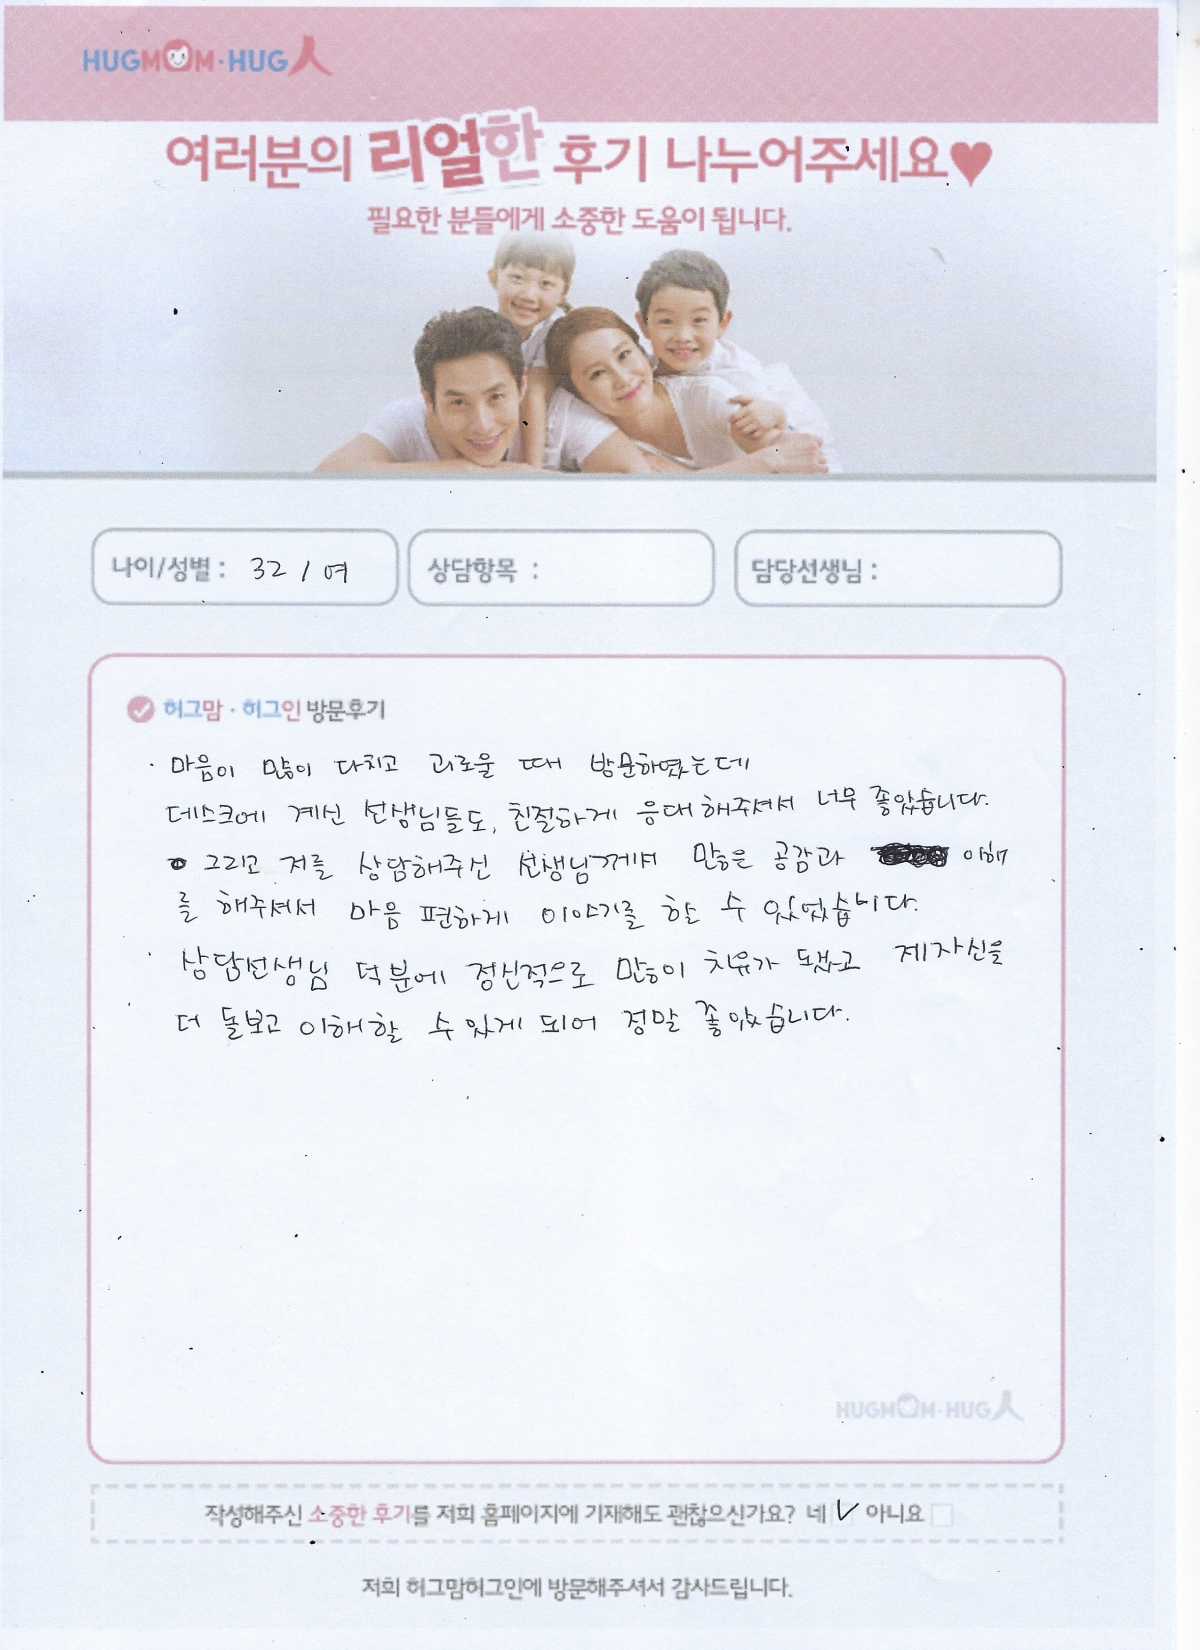 HUGMOM·HUG人
여러분의 리얼한 후기 나누어주세요♥
필요한 분들에게 소중한 도움이 됩니다.
나이/성별 : 32 / 여
상담항목 :
담당선생님 :
허그맘·허그인 방문후기
· 마음이 많이 다치고 괴로울 때 방문하였는데
데스크에 계신 선생님들도, 친절하게 응대해주셔서 너무 좋았습니다.
• 그리고 저를 상담해주신 선생님께서 많은 공감과 이해
를 해주셔서 마음 편하게 이야기를 할 수 있었습니다.
· 상담선생님 덕분에 정신적으로 많이 치유가 됐고 제자신을
더 돌보고 이해할 수 있게 되어 정말 좋았습니다.
HUGMOM·HUG人
작성해주신 소중한 후기를 저희 홈페이지에 기재해도 괜찮으신가요? 네 ✓ 아니요 □
저희 허그맘허그인에 방문해주셔서 감사드립니다.